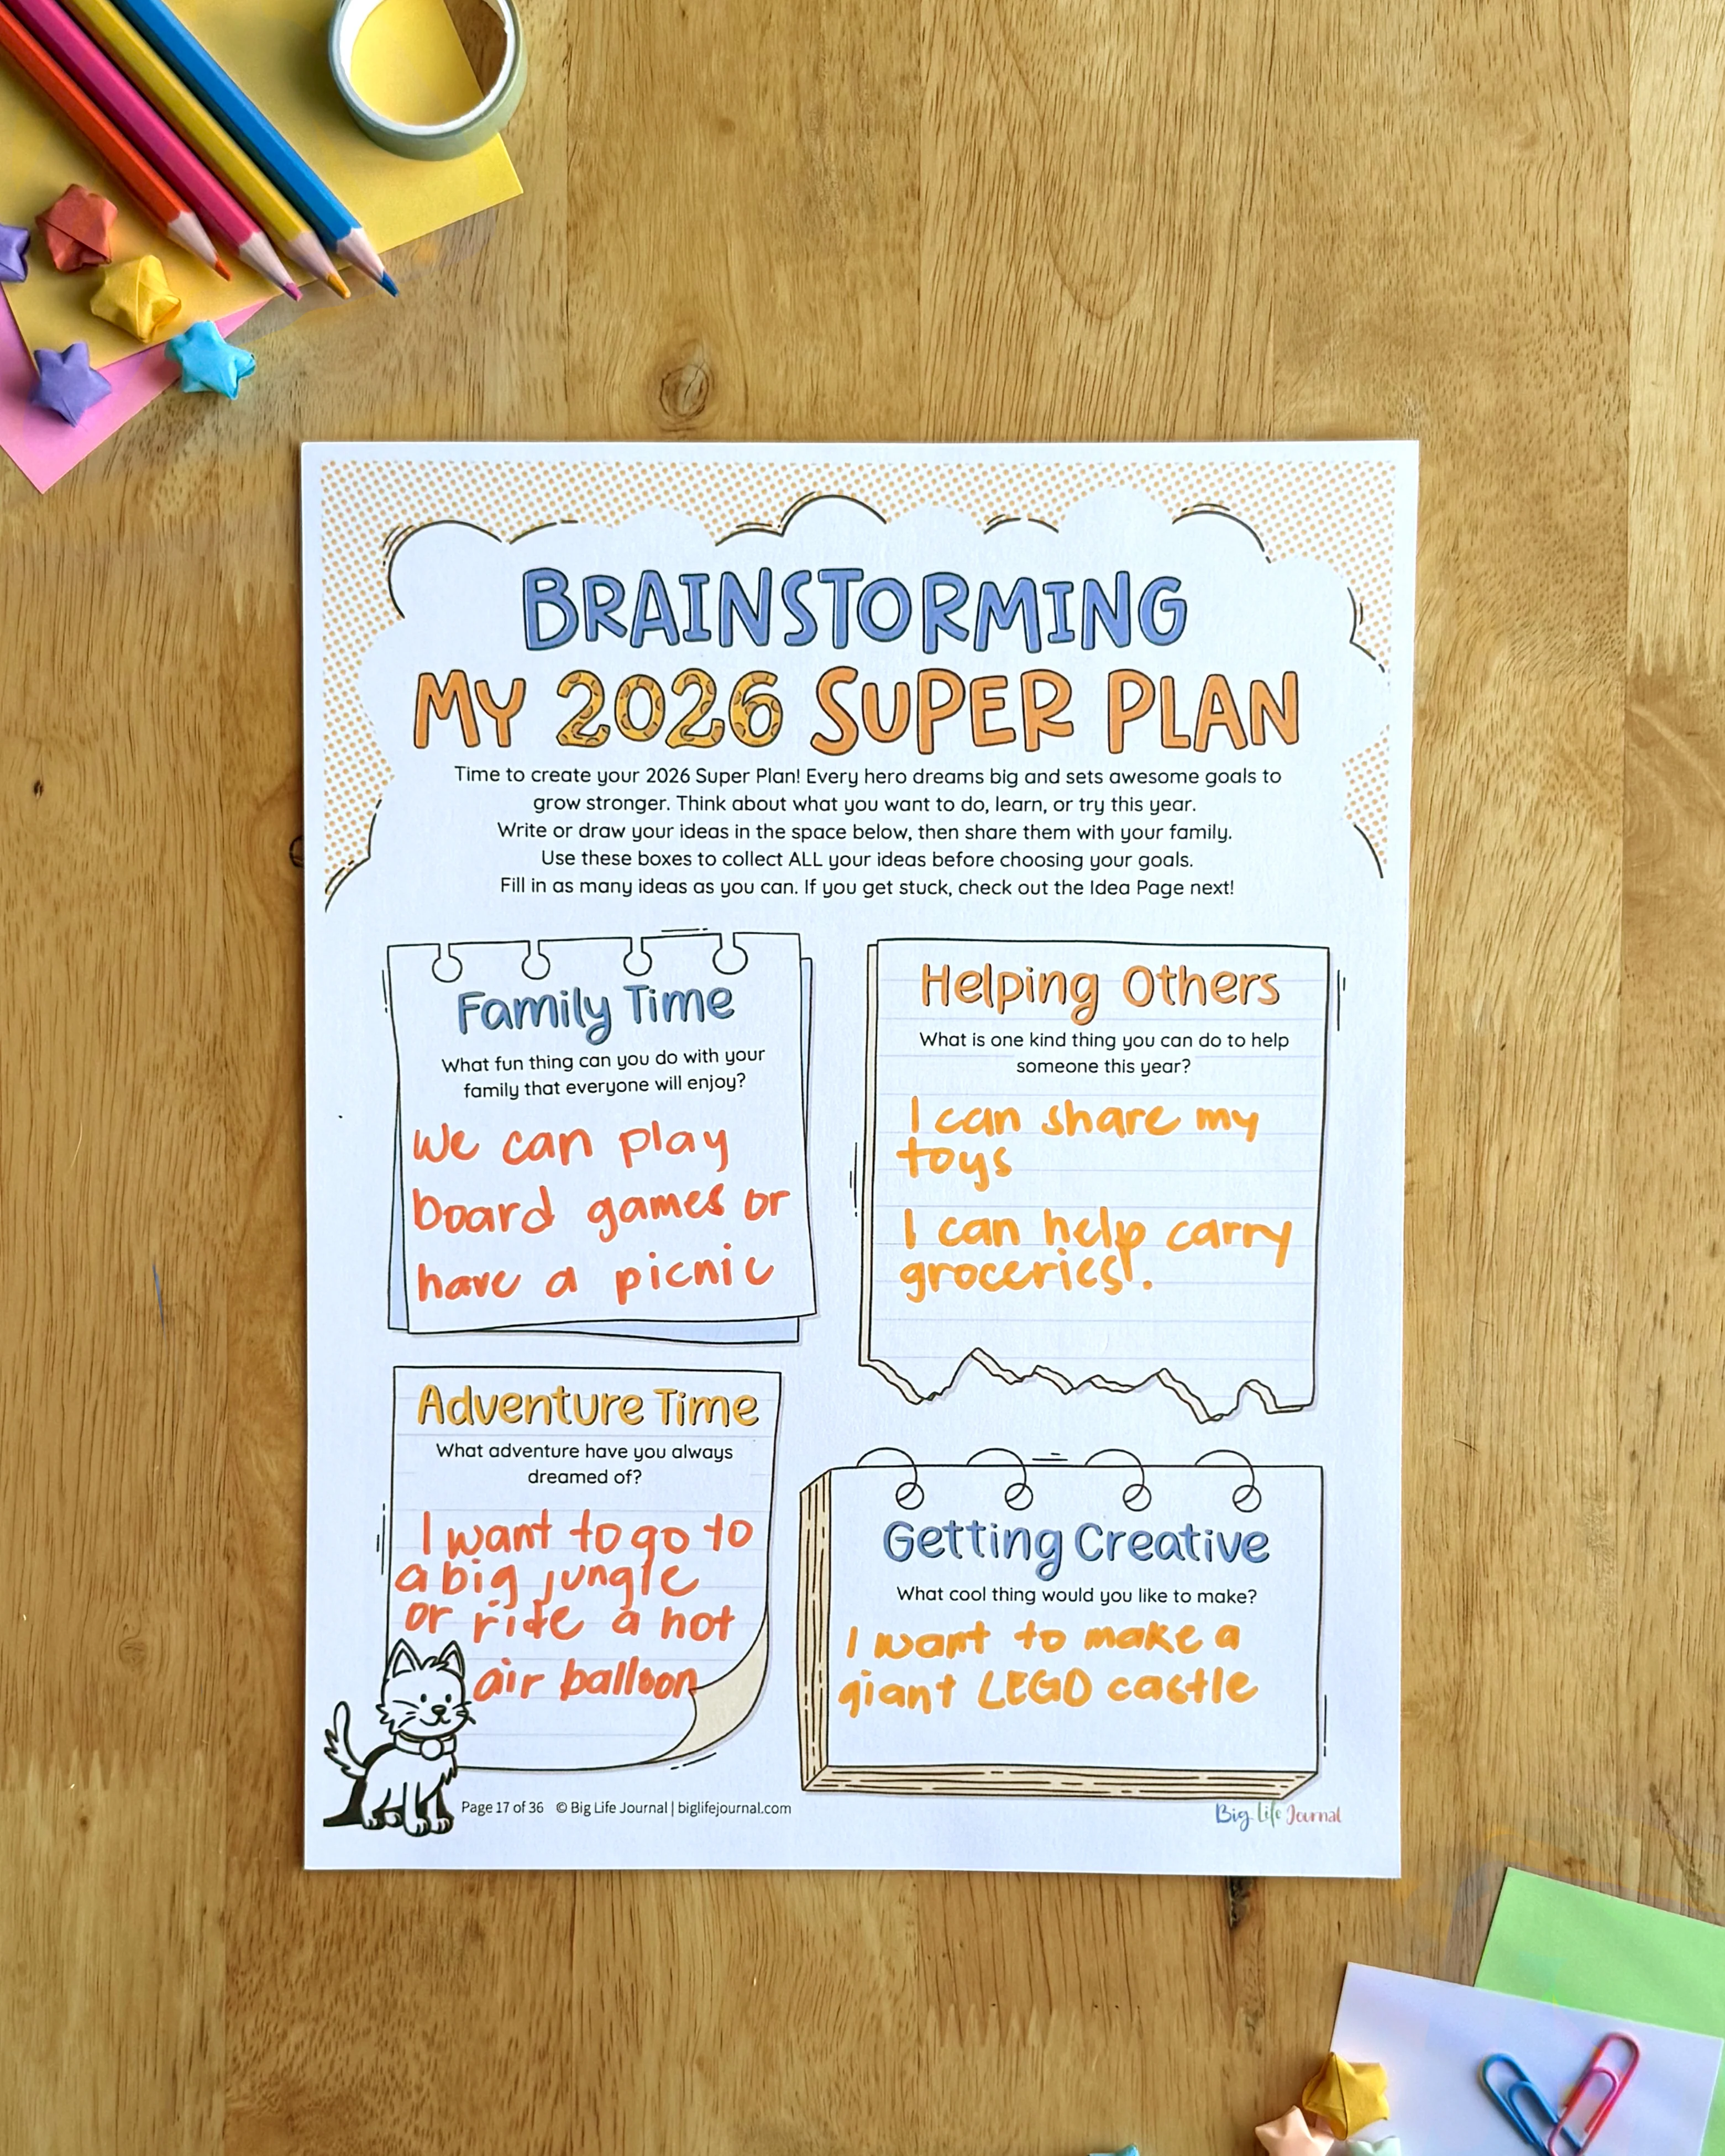 BRAINSTORMING
MY 2026 SUPER PLAN
Time to create your 2026 Super Plan! Every hero dreams big and sets awesome goals to
grow stronger. Think about what you want to do, learn, or try this year.
Write or draw your ideas in the space below, then share them with your family.
Use these boxes to collect ALL your ideas before choosing your goals.
Fill in as many ideas as you can. If you get stuck, check out the Idea Page next!
Family Time
What fun thing can you do with your
family that everyone will enjoy?
We can play
board games or
have a picnic
Helping Others
What is one kind thing you can do to help
someone this year?
I can share my
toys
I can help carry
groceries.
Adventure Time
What adventure have you always
dreamed of?
I want to go to
a big jungle
or ride a hot
air balloon
Getting Creative
What cool thing would you like to make?
I want to make a
giant LEGO castle
Page 17 of 36 © Big Life Journal | biglifejournal.com
Big Life Journal